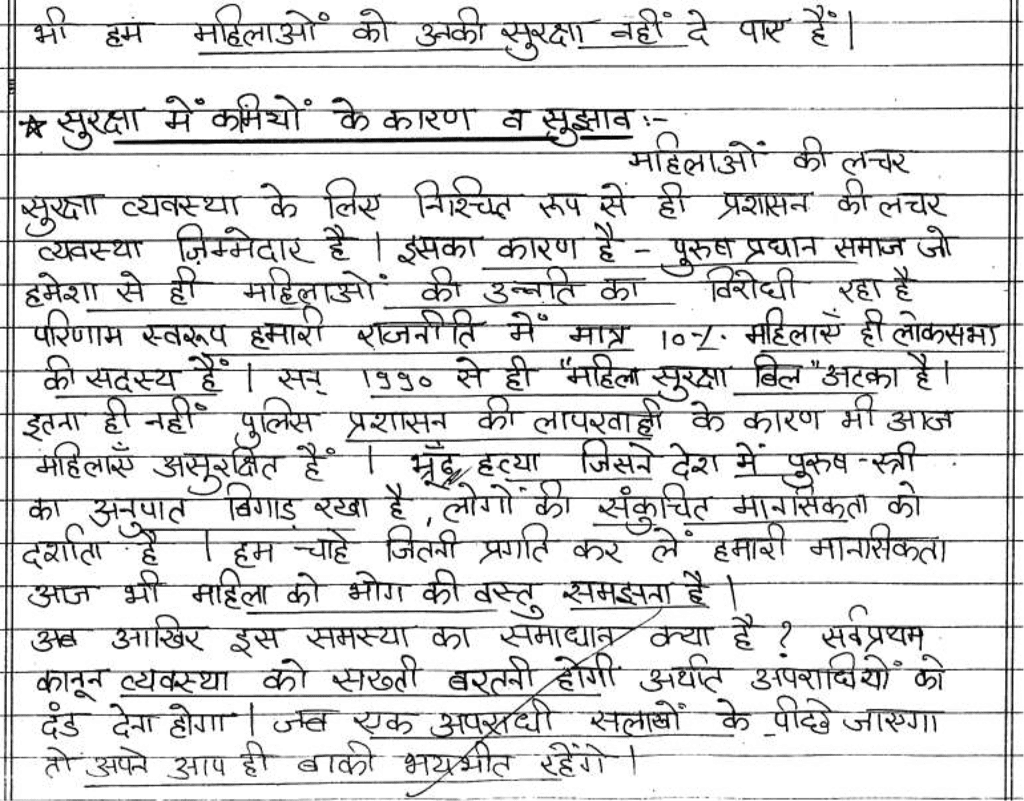 भी हम महिलाओं को उनकी सुरक्षा नहीं दे पाए हैं।
★ सुरक्षा में कमियों के कारण व सुझाव :-
महिलाओं की लचर
सुरक्षा व्यवस्था के लिए निश्चित रूप से ही प्रशासन की लचर
व्यवस्था ज़िम्मेदार है । इसका कारण है - पुरुष प्रधान समाज जो
हमेशा से ही महिलाओं की उन्नति का विरोधी रहा है
परिणाम स्वरूप हमारी राजनीति में मात्र 10%. महिलाएँ ही लोकसभा
की सदस्य हैं । सन् 1990 से ही "महिला सुरक्षा बिल" अटका है।
इतना ही नहीं पुलिस प्रशासन की लापरवाही के कारण भी आज
महिलाएँ असुरक्षित हैं । हत्या जिसने देश में पुरुष-स्त्री
का अनुपात बिगाड़ रखा है, लोगों की संकुचित मानसिकता को
दर्शाता है । हम चाहे जितनी प्रगति कर लें हमारी मानसिकता
आज भी महिला को भोग की वस्तु समझना है ।
अब आखिर इस समस्या का समाधान क्या है ? सर्वप्रथम
कानून व्यवस्था को सख्ती बरतनी होगी अर्थात अपराधियों को
दंड देना होगा । जब एक अपराधी सलाखों के पीछे जाएगा
तो अपने आप ही बाकी भयभीत रहेंगे ।